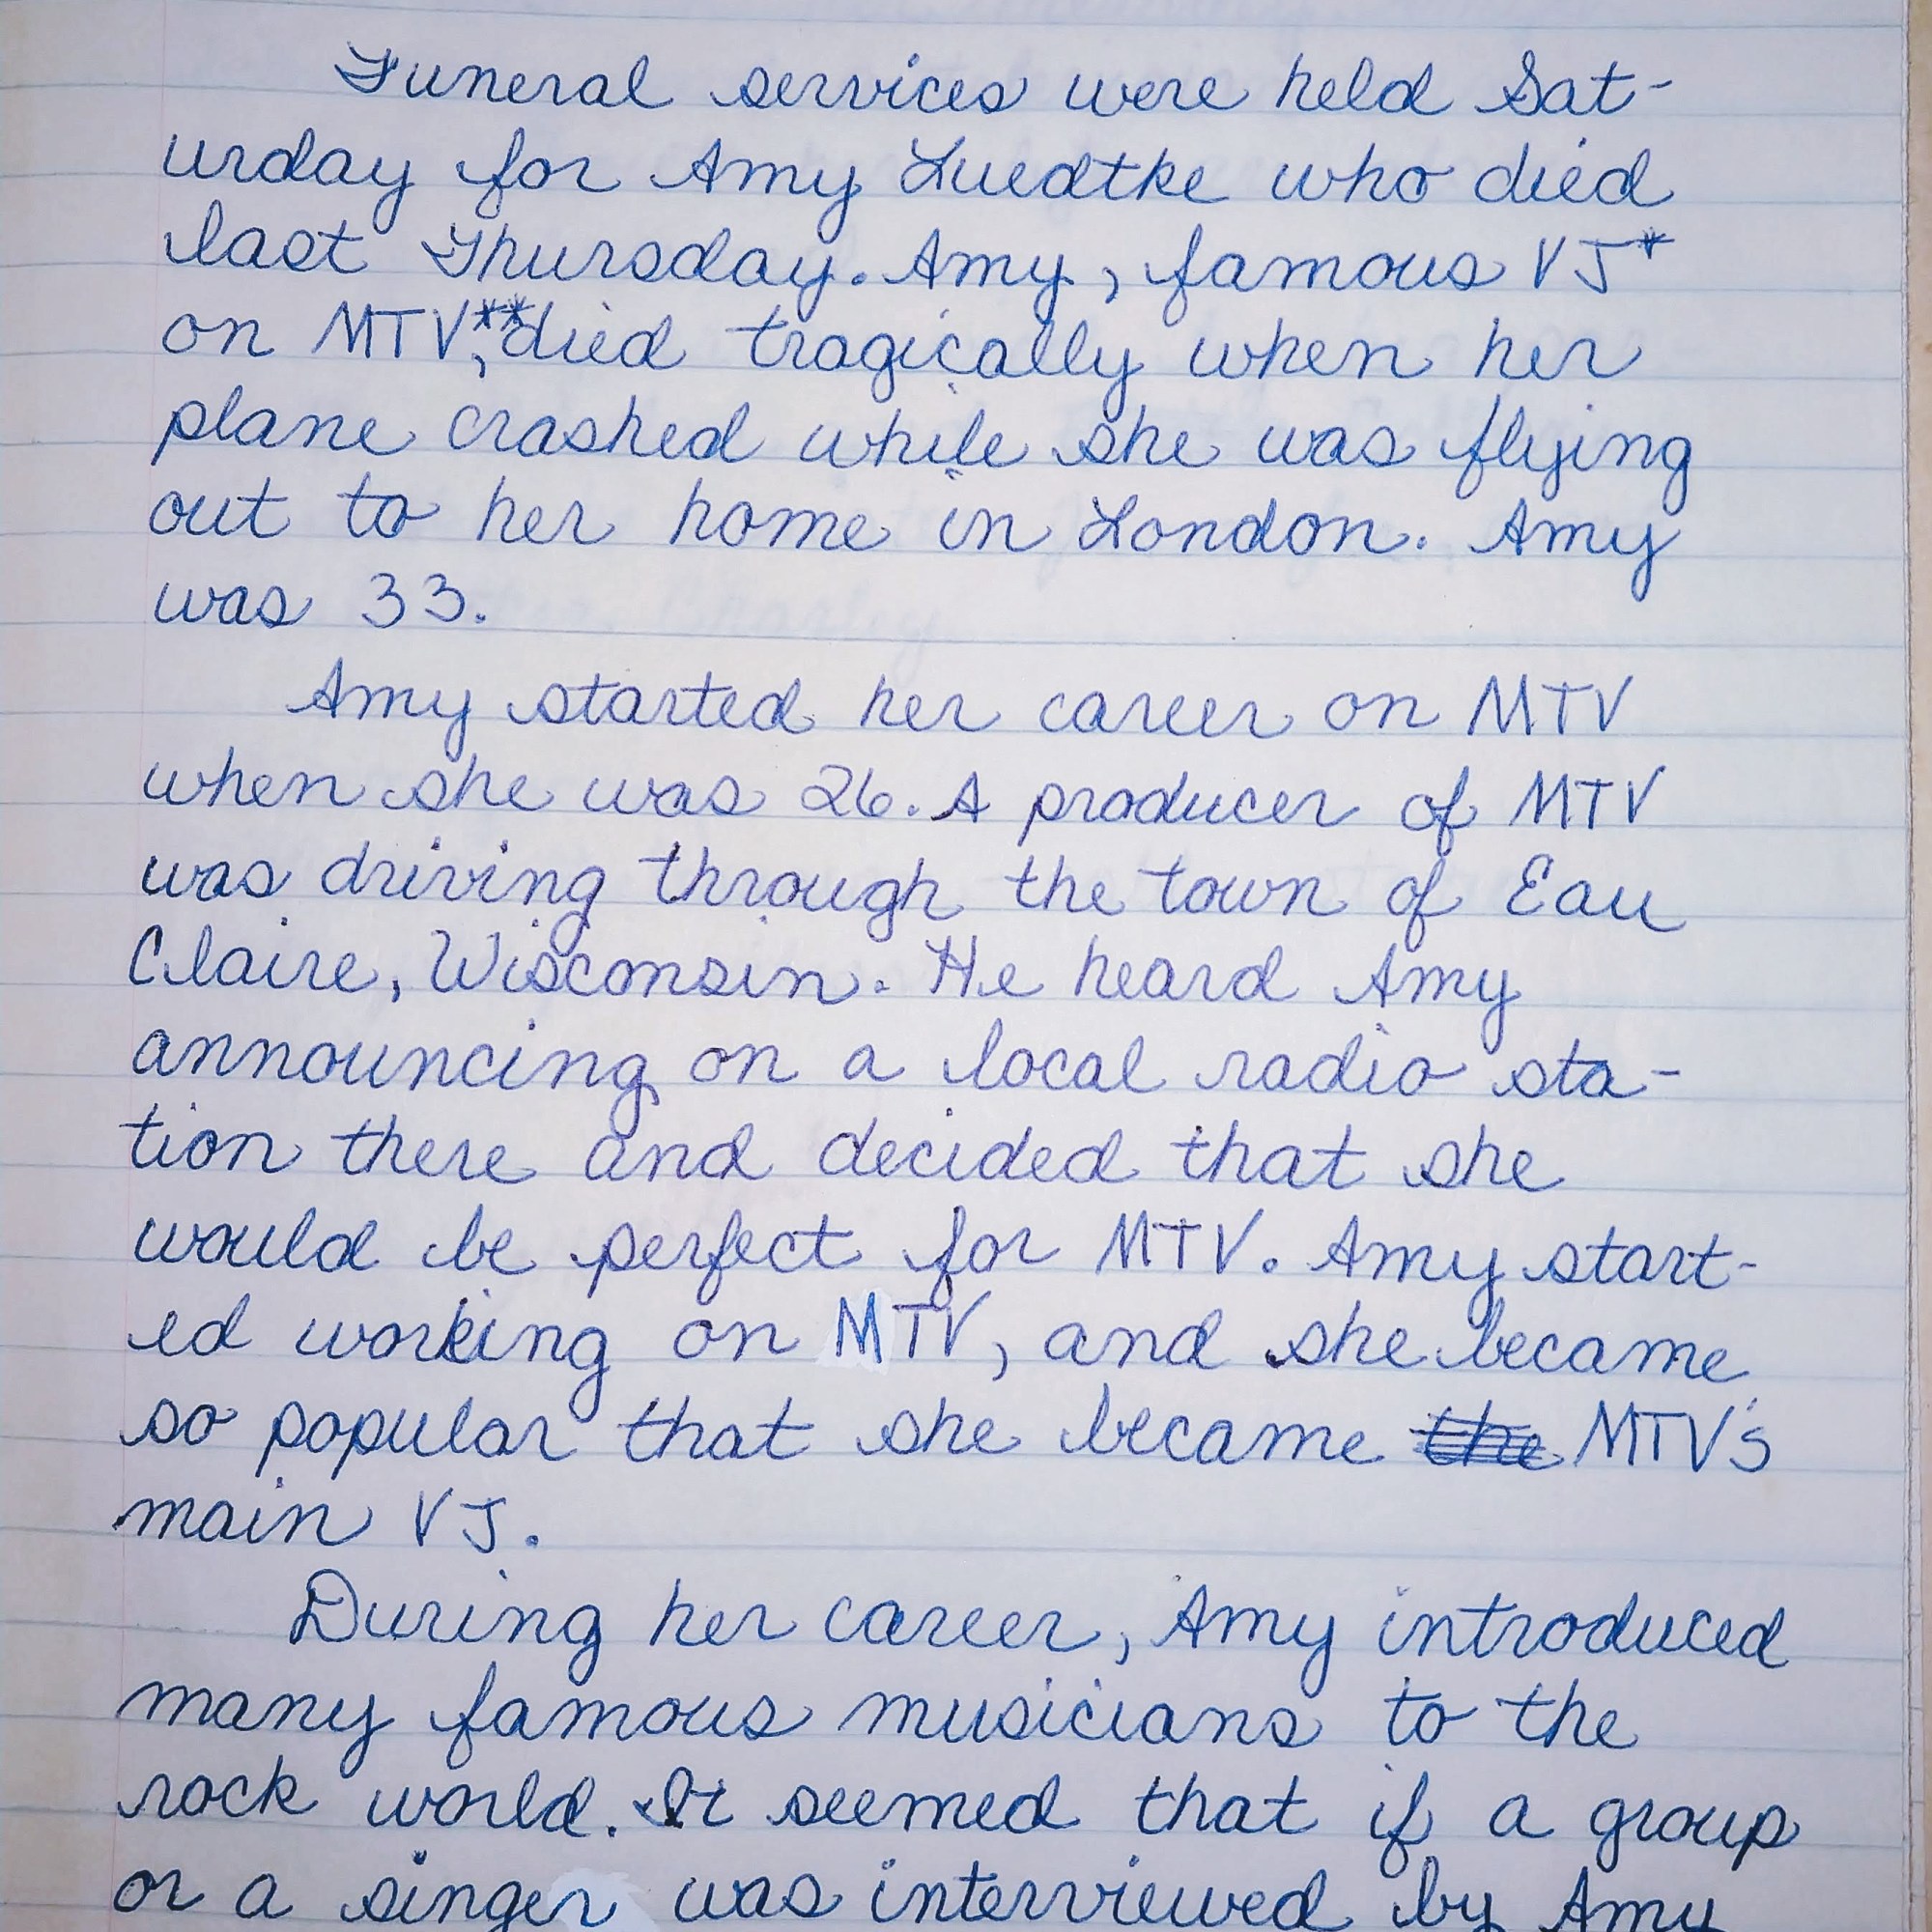 Funeral services were held Sat-
urday for Amy Luedtke who died
last Thursday. Amy, famous VJ*
on MTV**, died tragically when her
plane crashed while she was flying
out to her home in London. Amy
was 33.
Amy started her career on MTV
when she was 26. A producer of MTV
was driving through the town of Eau
Claire, Wisconsin. He heard Amy
announcing on a local radio sta-
tion there and decided that she
would be perfect for MTV. Amy start-
ed working on MTV, and she became
so popular that she became the MTV's
main VJ.
During her career, Amy introduced
many famous musicians to the
rock world. It seemed that if a group
or a singer was interviewed by Amy